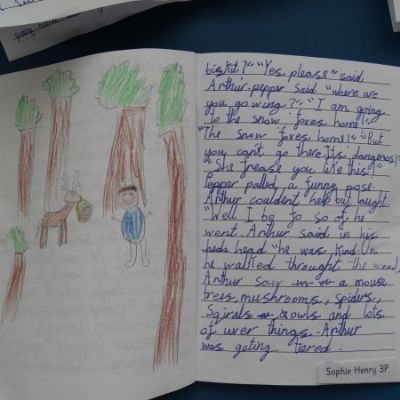 biskit?" "Yes please" said
Arthur. pepper said "where are
you gowing?" "I am going
to the snow foxes home!"
"The snow foxes home!" "But
you can't go there It's dangeros!"
"She frease you like this!"
Pepper palled a funny pose.
Arthur couldent help but laught.
"Well I be fo so of he
went. Arthur said in his
heda head "he was Kind. Un
he wallted throught the wood,
Arthur saw a mouse
trees, mushrooms, spiders,
Sqirals owls and lots
of uver things. Arthur
was geting tiered.
Sophie Henry 3P